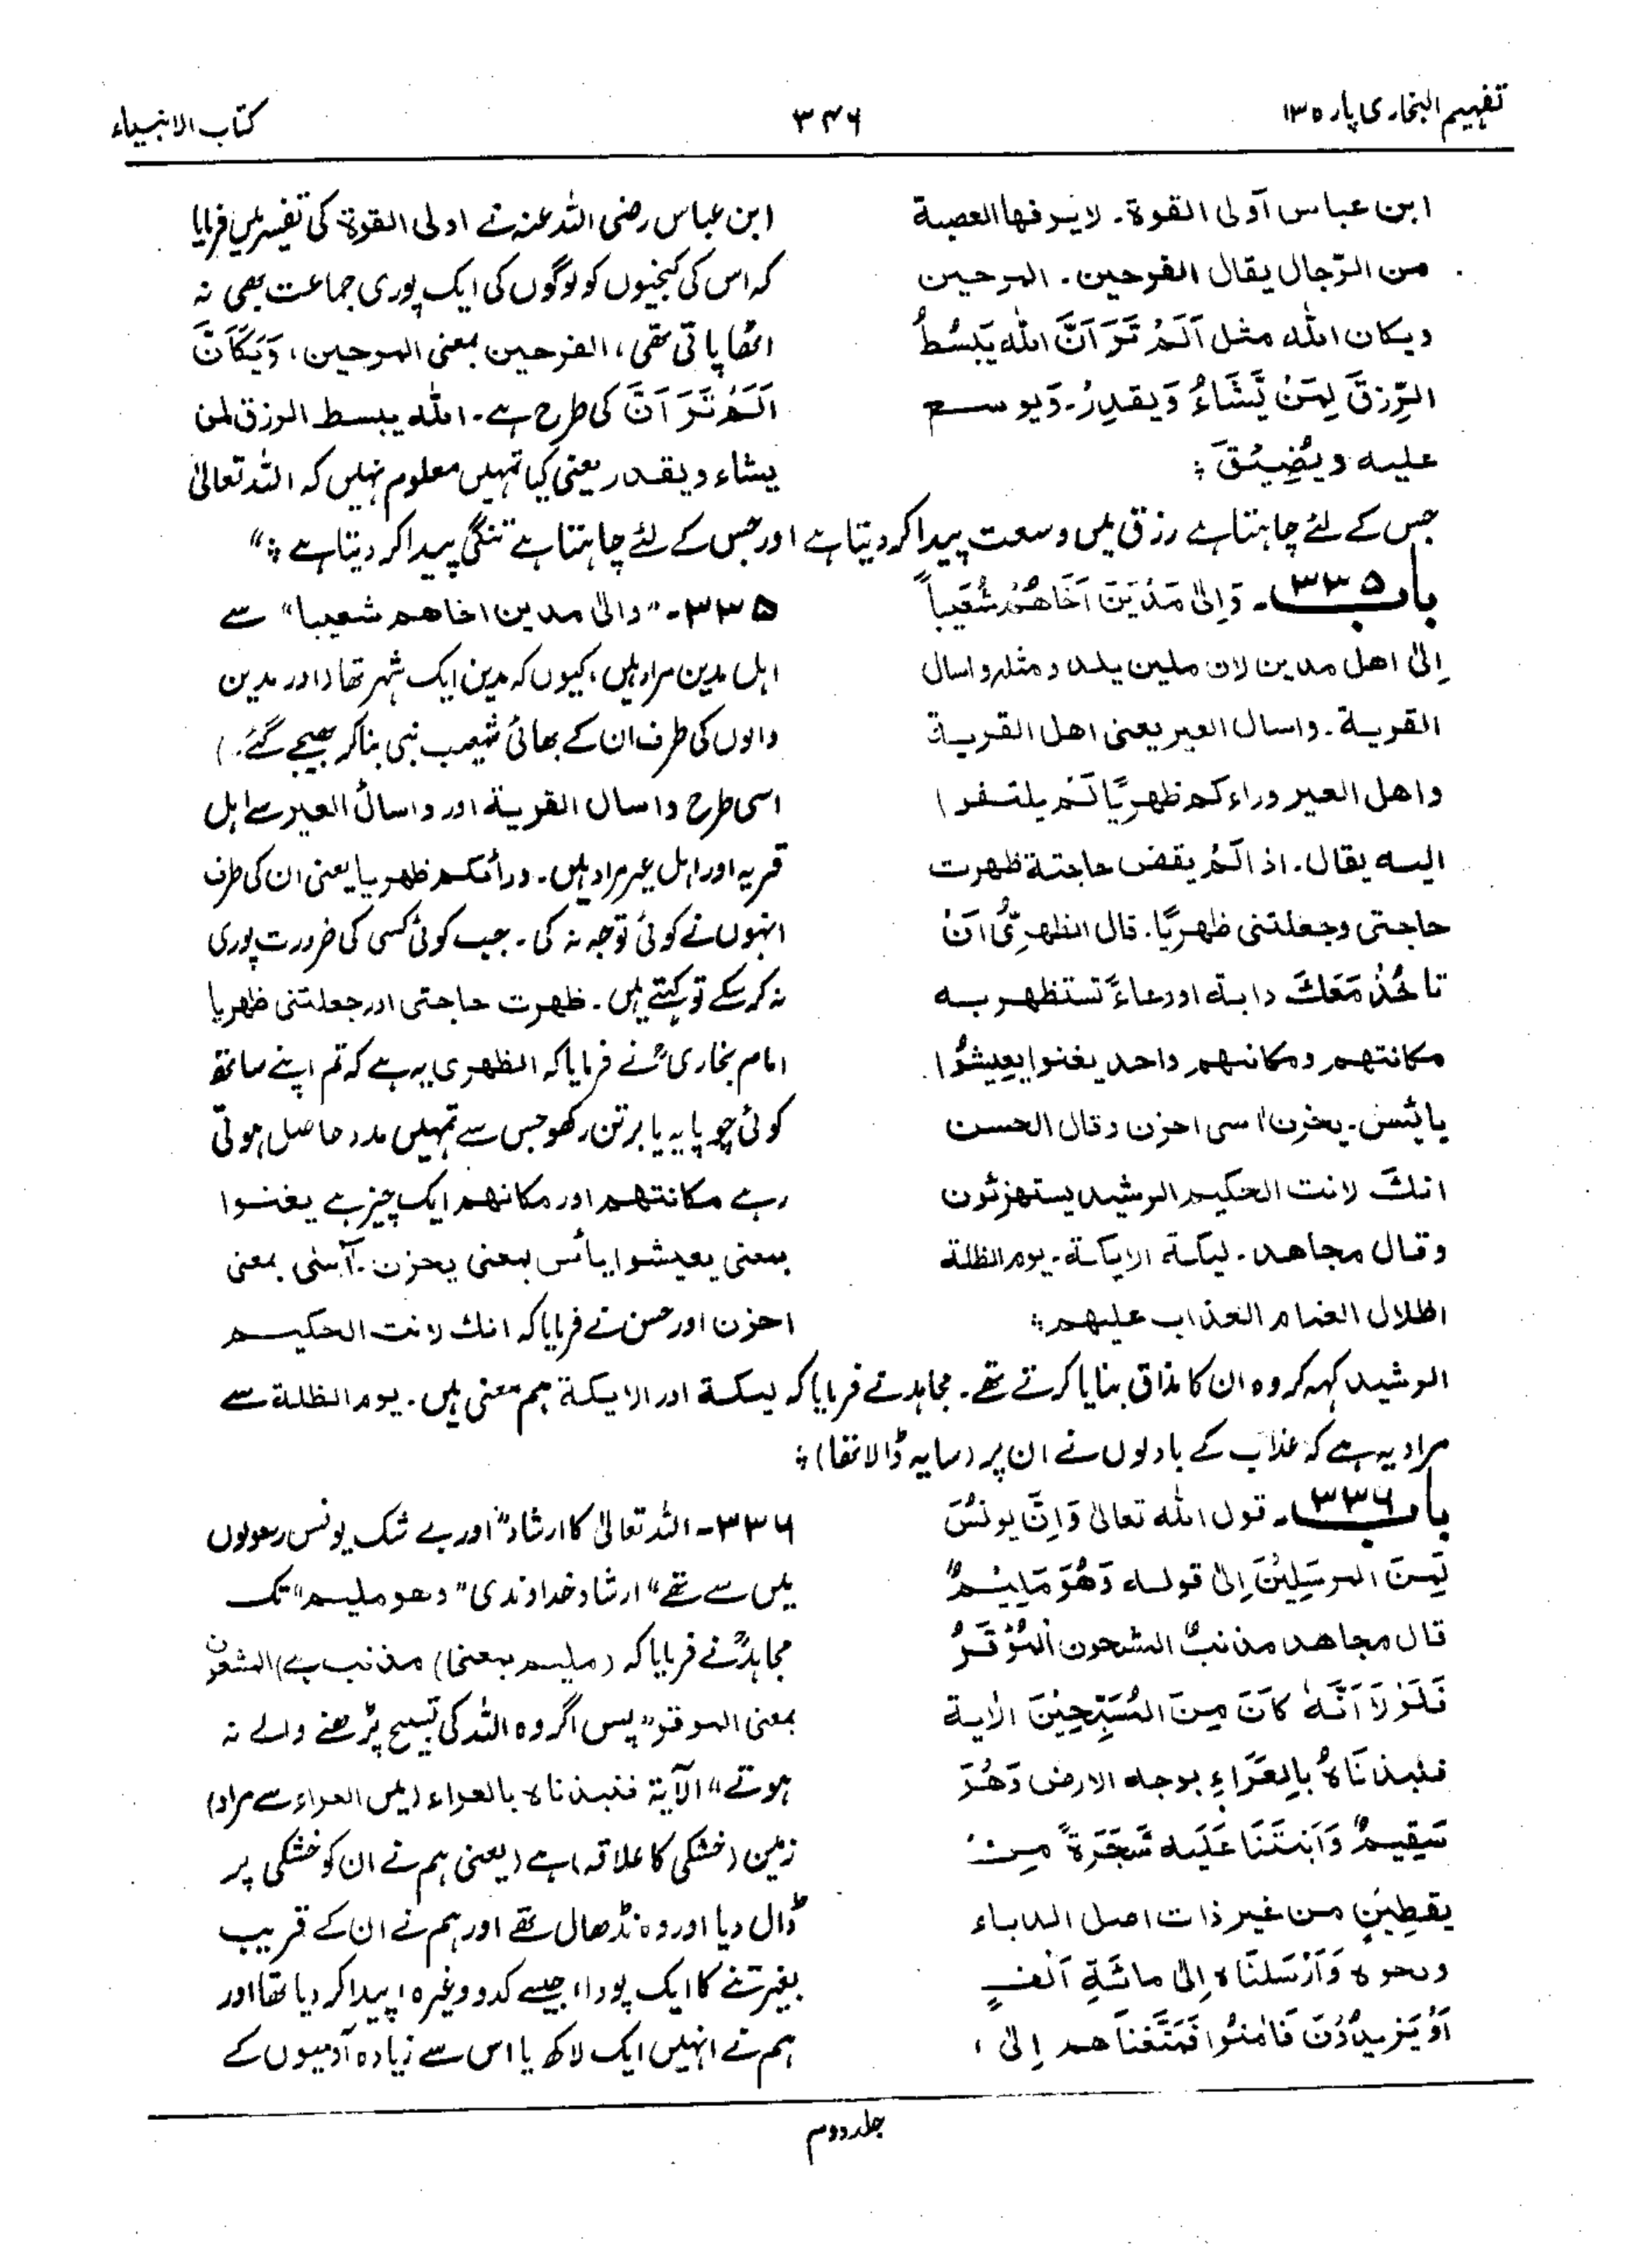 تفہیم البخاری پارہ ۱۳
۳۴۶
کتاب الانبیاء
ابن عباس اَولی القوة۔ لایرفعها العصبة
من الرّجال یقال الفرحین۔ المرحین
ویکان الله مثل اَلَمْ تَرَ اَنَّ اللهَ یَبْسُطُ
الرِّزقَ لِمَنْ یَّشَاءُ وَیقدِرُ۔ وَیوسع
علیه ویُضِیِّقُ :
ابن عباس رضی اللہ عنہ نے اولی القوة کی تفسیر میں فرمایا
کہ اس کی کنجیوں کو لوگوں کی ایک پوری جماعت بھی نہ
اٹھا پاتی تھی، الفرحین بمعنی المرحین، وَیْکَاَنَّ
اَلَمْ تَرَ اَنَّ کی طرح ہے۔ الله یبسط الرزق لمن
یشاء ویقدر یعنی کیا تمہیں معلوم نہیں کہ اللہ تعالیٰ
جس کے لئے چاہتا ہے رزق میں وسعت پیدا کر دیتا ہے اور جس کے لئے چاہتا ہے تنگی پیدا کر دیتا ہے :"
باب ۳۳۵۔ وَاِلیٰ مَدْیَنَ اَخَاهُمْ شُعَیباً
اِلیٰ اهل مدین لان مدین بلد ومثله واسال
القریة۔ واسال العیر یعنی اهل القریة
واهل العیر وراءکم ظهریًّا لَمْ یلتفتوا
الیه یقال۔ اذا لَمْ یقض حاجتة ظهرت
حاجتی وجعلتنی ظهریًّا۔ قال الظهریُّ اَنْ
تاخُذَ مَعَكَ دابة او وعاءً تستظهر به
مکانتهم ومکانهم واحد یغنوا یعیشُوا۔
یایٔس۔ یحزن اسی احزن وقال الحسن
انكَ لانت الحکیم الرشید یستهزئون
وقال مجاهد۔ لیکة الایکة۔ یوم الظلة
اظلال الغمام العذاب علیهم :
۳۳۵۔ "والیٰ مدین اخاهم شعیبا" سے
اہل مدین مراد ہیں، کیوں کہ مدین ایک شہر تھا (اور مدین
والوں کی طرف ان کے بھائی شعیب نبی بنا کر بھیجے گئے۔)
اسی طرح واسال القریة اور واسال العیر سے اہل
قریہ اور اہل عیر مراد ہیں۔ ورائکم ظهریا یعنی ان کی طرف
انہوں نے کوئی توجہ نہ کی۔ جب کوئی کسی کی ضرورت پوری
نہ کر سکے تو کہتے ہیں۔ ظهرت حاجتی اور جعلتنی ظهریا
امام بخاریؒ نے فرمایا کہ الظهری یہ ہے کہ تم اپنے ساتھ
کوئی چوپایہ یا برتن رکھو جس سے تمہیں مدد حاصل ہوتی
رہے مکانتهم اور مکانهم ایک چیز ہے یغنوا
بمعنی یعیشوا یائس بمعنی یحزن۔ آسٰی بمعنی
احزن اور حسن نے فرمایا کہ انك لانت الحکیم
الرشید کہہ کر وہ ان کا مذاق بنایا کرتے تھے۔ مجاہد نے فرمایا کہ لیکة اور الایکة ہم معنی ہیں۔ یوم الظلة سے
مراد یہ ہے کہ عذاب کے بادلوں نے ان پر (سایہ ڈالا تھا) :
باب ۳۳۶۔ قول الله تعالیٰ وَاِنَّ یونُسَ
لَمِنَ المرسَلِیْنَ اِلیٰ قوله وَهُوَ مُلِیْمٌ
قال مجاهد مذنبٌ المشحون اَلْمُوْقَرُ
فَلَوْلَا اَنَّهُ کَانَ مِنَ المُسَبِّحِیْنَ الاٰیة
فنبذنَاهُ بِالعَرَاءِ بوجه الارض وَهُوَ
سَقِیمٌ وَاَنبَتْنَا عَلَیه شَجَرَةً مِنْ
یقطِینٍ من غیر ذات اصل الدباء
ونحوه وَاَرْسَلنَاه اِلیٰ مائَةِ اَلْفٍ
اَوْ یَزیدُوْنَ فَاٰمنُوا فَمَتَّعْنَاهم اِلیٰ،
۳۳۶۔ اللہ تعالیٰ کا ارشاد "اور بے شک یونس رسولوں
میں سے تھے" ارشاد خداوندی "وهو ملیم" تک
مجاہدؒ نے فرمایا کہ (ملیم بمعنی) مذنب ہے) المشحون
بمعنی الموقر "پس اگر وہ اللہ کی تسبیح پڑھنے والے نہ
ہوتے" الآیة فنبذناه بالعراء (میں العراء سے مراد)
زمین (خشکی کا علاقہ) ہے (یعنی ہم نے ان کو خشکی پر
ڈال دیا اور وہ نڈھال تھے اور ہم نے ان کے قریب
بغیر تنے کا ایک پودا، جیسے کدو وغیرہ، پیدا کر دیا تھا اور
ہم نے انہیں ایک لاکھ یا اس سے زیادہ آدمیوں کے
جلد دوم